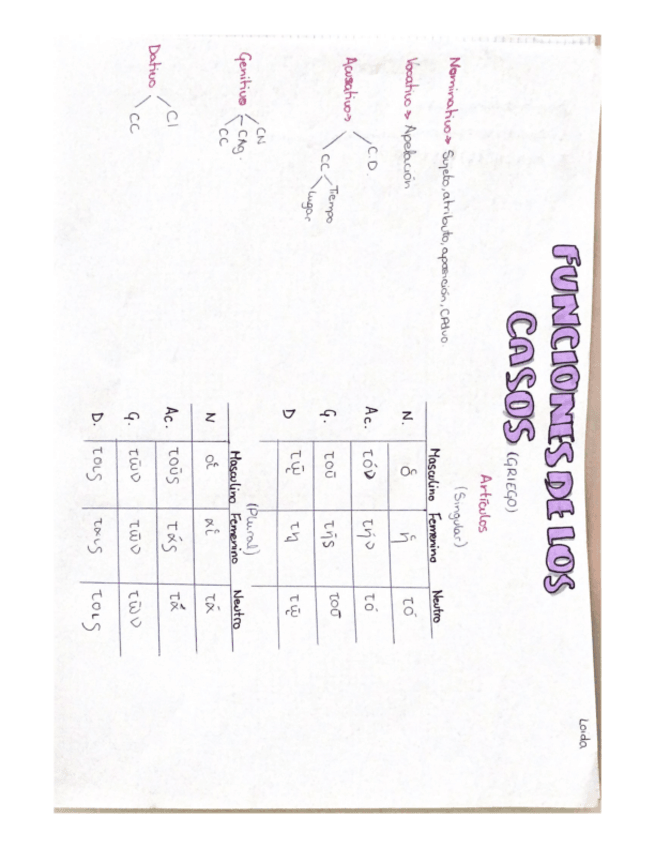 Loida
FUNCIONES DE LOS
CASOS (GRIEGO)
Nominativo → Sujeto, atributo, aposición, CPdvo.
Vocativo → Apelación
Acusativo → C.D.
CC Tiempo
Lugar
Genitivo CN
CAg.
CC
Dativo CI
CC
Artículos
(Singular)
Masculino Femenino Neutro
N. ὁ ἡ τό
Ac. τόν τήν τό
G. τοῦ τῆς τοῦ
D τῷ τῃ τῷ
(Plural)
Masculino Femenino Neutro
N οἱ αἱ τά
Ac. τούς τάς τά
G. τῶν τῶν τῶν
D. τοις ταις τοις